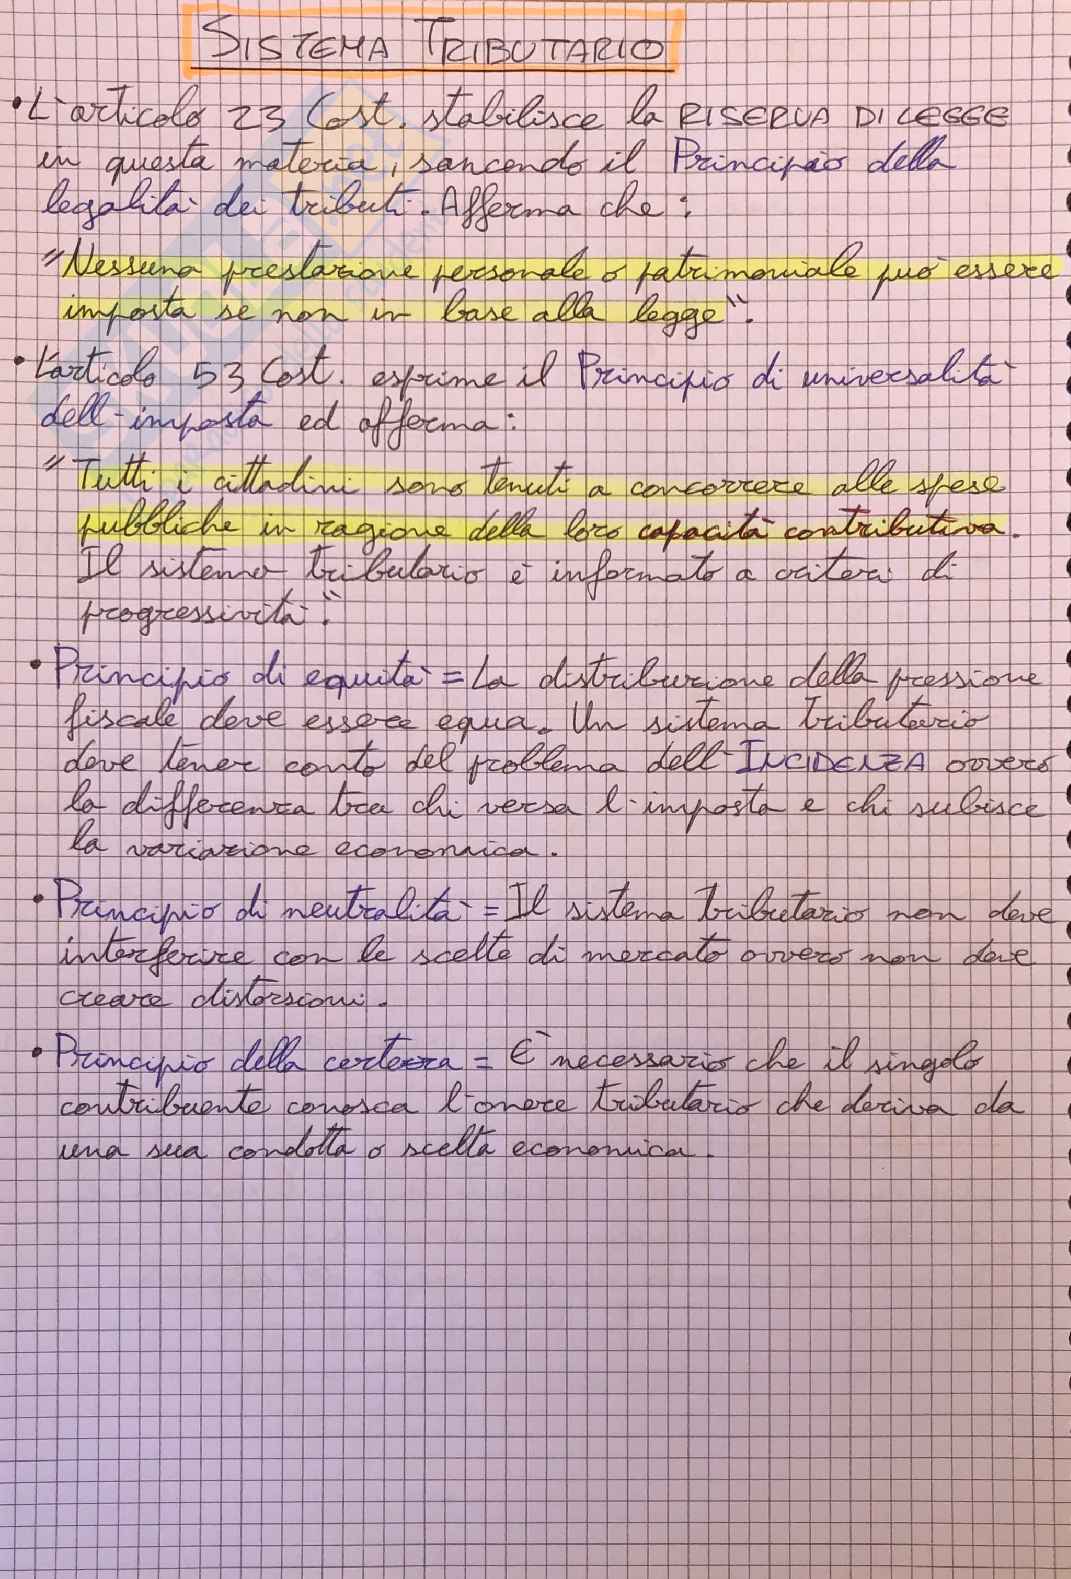 SISTEMA TRIBUTARIO
• L'articolo 23 Cost. stabilisce la RISERVA DI LEGGE
in questa materia, sancendo il Principio della
legalità dei tributi. Afferma che:
"Nessuna prestazione personale o patrimoniale può essere
imposta se non in base alla legge".
• L'articolo 53 Cost. esprime il Principio di universalità
dell'imposta ed afferma:
"Tutti i cittadini sono tenuti a concorrere alle spese
pubbliche in ragione della loro capacità contributiva.
Il sistema tributario è informato a criteri di
progressività".
• Principio di equità = La distribuzione della pressione
fiscale deve essere equa. Un sistema tributario
deve tener conto del problema dell'INCIDENZA ovvero
la differenza tra chi versa l'imposta e chi subisce
la variazione economica.
• Principio di neutralità = Il sistema tributario non deve
interferire con le scelte di mercato ovvero non deve
creare distorsioni.
• Principio della certezza = È necessario che il singolo
contribuente conosca l'onere tributario che deriva da
una sua condotta o scelta economica.